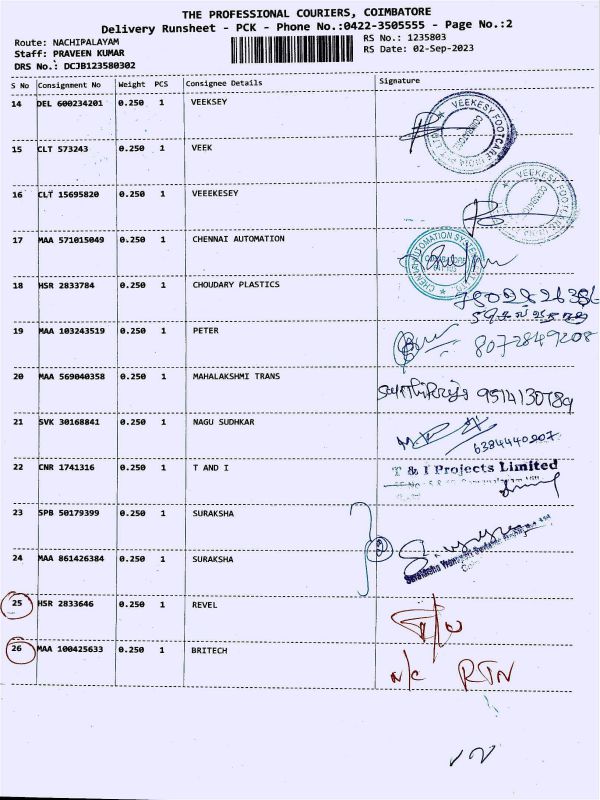 THE PROFESSIONAL COURIERS, COIMBATORE
Delivery Runsheet - PCK - Phone No.:0422-3505555 - Page No.:2
Route: NACHIPALAYAM
RS No.: 1235803
Staff: PRAVEEN KUMAR
RS Date: 02-Sep-2023
DRS No.: DCJB123580302
S No Consignment No Weight PCS Consignee Details Signature
14 DEL 600234201 0.250 1 VEEKSEY
VEEKESY FOOTCARE
15 CLT 573243 0.250 1 VEEK
16 CLT 15695820 0.250 1 VEEEKESEY
VEEKESY FOOTCARE
17 MAA 571015049 0.250 1 CHENNAI AUTOMATION
18 HSR 2833784 0.250 1 CHOUDARY PLASTICS
19 MAA 103243519 0.250 1 PETER
8072849208
20 MAA 569040358 0.250 1 MAHALAKSHMI TRANS
21 SVK 30168841 0.250 1 NAGU SUDHKAR
22 CNR 1741316 0.250 1 T AND I
T & I Projects Limited
23 SPB 50179399 0.250 1 SURAKSHA
2
24 MAA 861426384 0.250 1 SURAKSHA
25 HSR 2833646 0.250 1 REVEL
26 MAA 100425633 0.250 1 BRITECH
N/C RTN